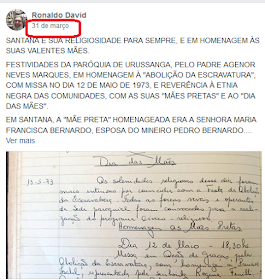 Ronaldo David
31 de março
SANTANA E SUA RELIGIOSIDADE PARA SEMPRE, E EM HOMENAGEM ÀS
SUAS VALENTES MÃES.
FESTIVIDADES DA PARÓQUIA DE URUSSANGA, PELO PADRE AGENOR
NEVES MARQUES, EM HOMENAGEM À "ABOLIÇÃO DA ESCRAVATURA",
COM MISSA NO DIA 12 DE MAIO DE 1973, E REVERÊNCIA À ETNIA
NEGRA DAS COMUNIDADES, COM AS SUAS "MÃES PRETAS" E AO "DIA
DAS MÃES".
EM SANTANA, A "MÃE PRETA" HOMENAGEADA ERA A SENHORA MARIA
FRANCISCA BERNARDO, ESPOSA DO MINEIRO PEDRO BERNARDO....
Ver mais
Dia das Mães
13-5-73 As solenidades religiosas desse dia foram
mais intensas por coincidir com a Festa da Abolição
da Escravatura. Todas as forças vivas e operantes
da Sede paroquial foram convocadas para a
do programa cívico e religioso.
Homenagem às Mães Pretas
Dia 12 de Maio - 18,30hs
Missa em Ação de Graças, pela
Abolição da Escravatura, com